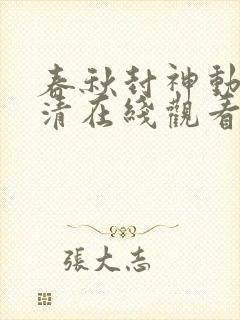 春秋封神動
清在綫觀看
張大志